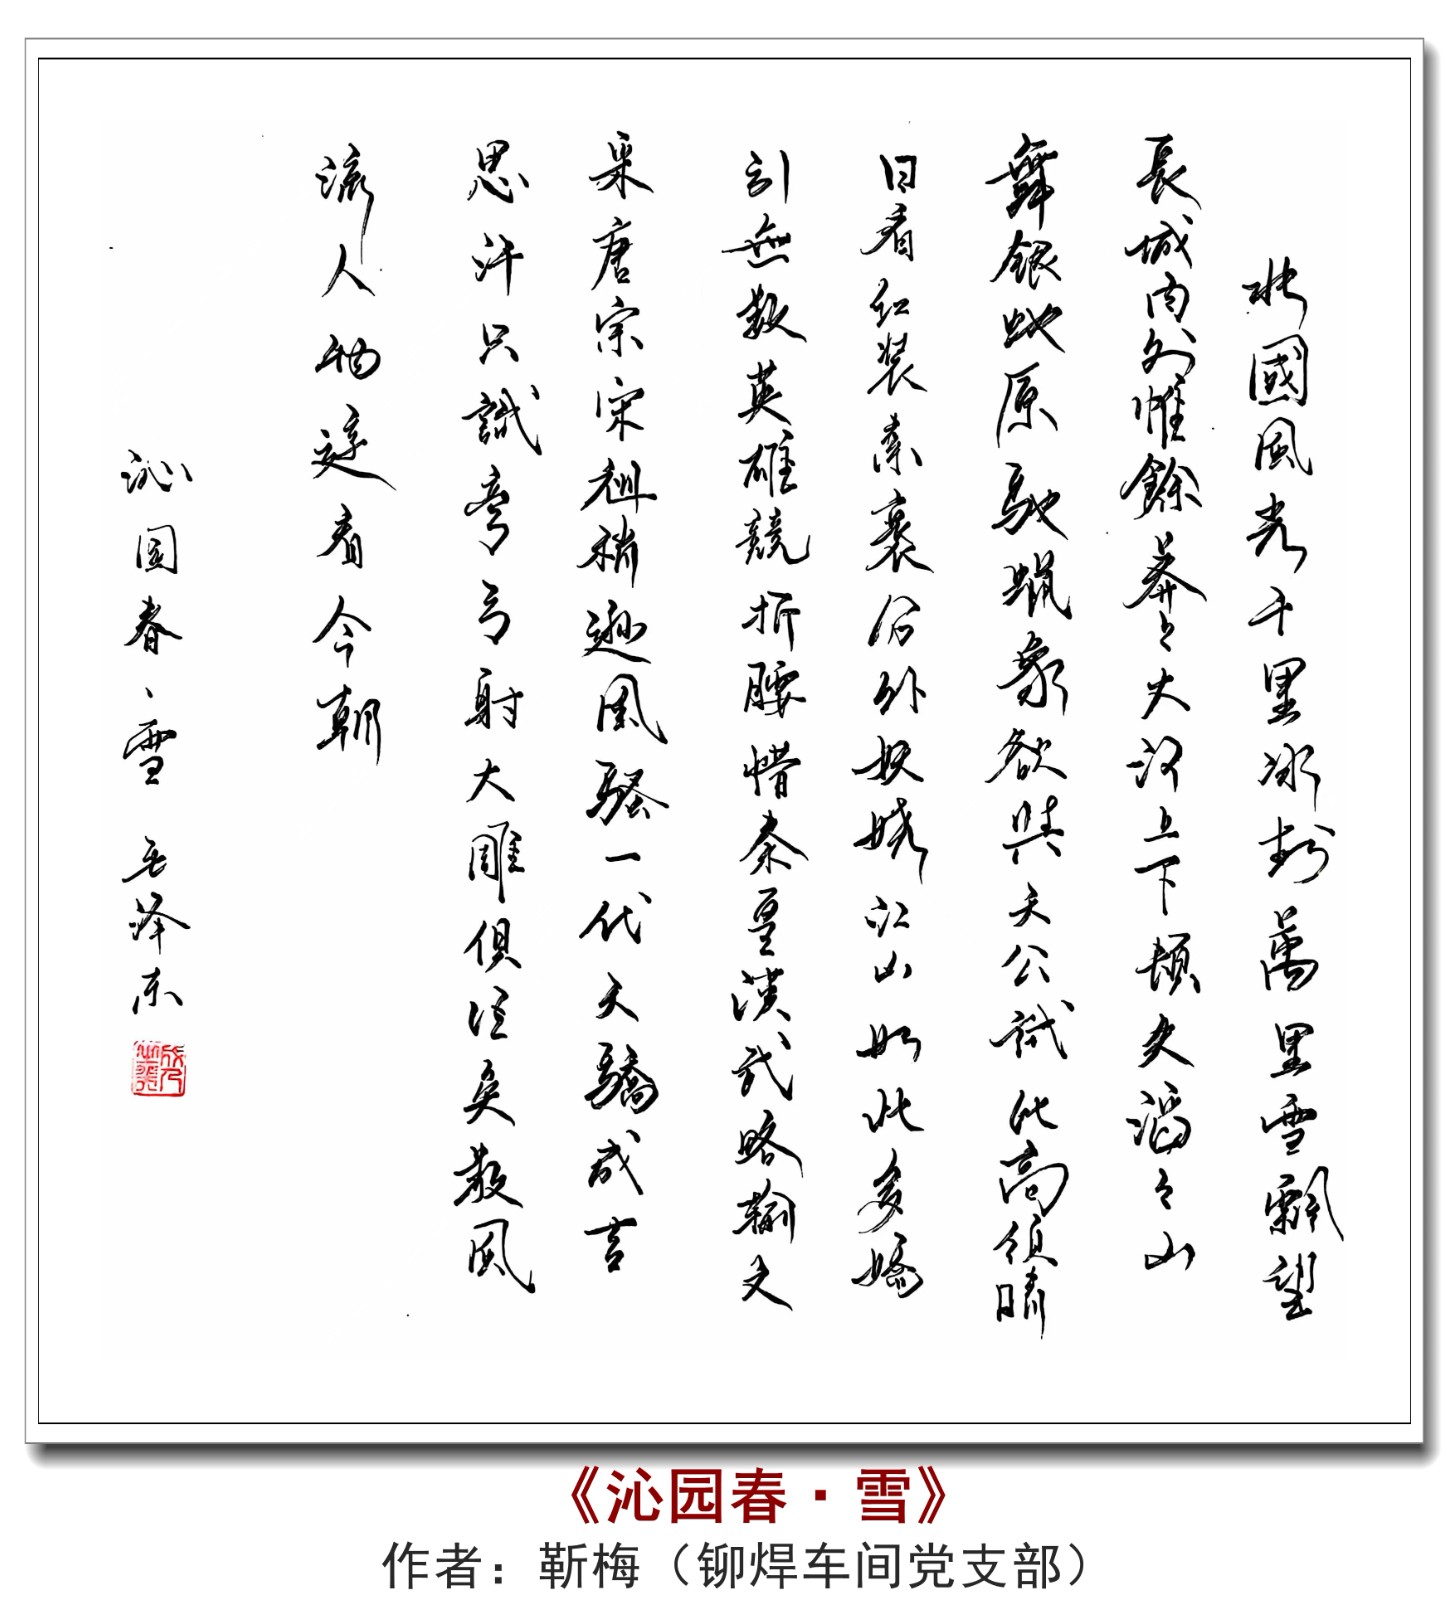 北國風光千里冰封萬里雪飄望
長城内外惟餘莽々大河上下頓失滔々山
舞銀蛇原馳蠟象欲與天公試比高須晴
日看红装素裹分外妖嬈江山如此多嬌
引無数英雄競折腰惜秦皇漢武略輸文
采唐宗宋祖稍遜風騷一代天驕成吉
思汗只識彎弓射大雕俱往矣数風
流人物還看今朝
沁园春、雪 毛泽东
《沁园春·雪》
作者：靳梅（铆焊车间党支部）